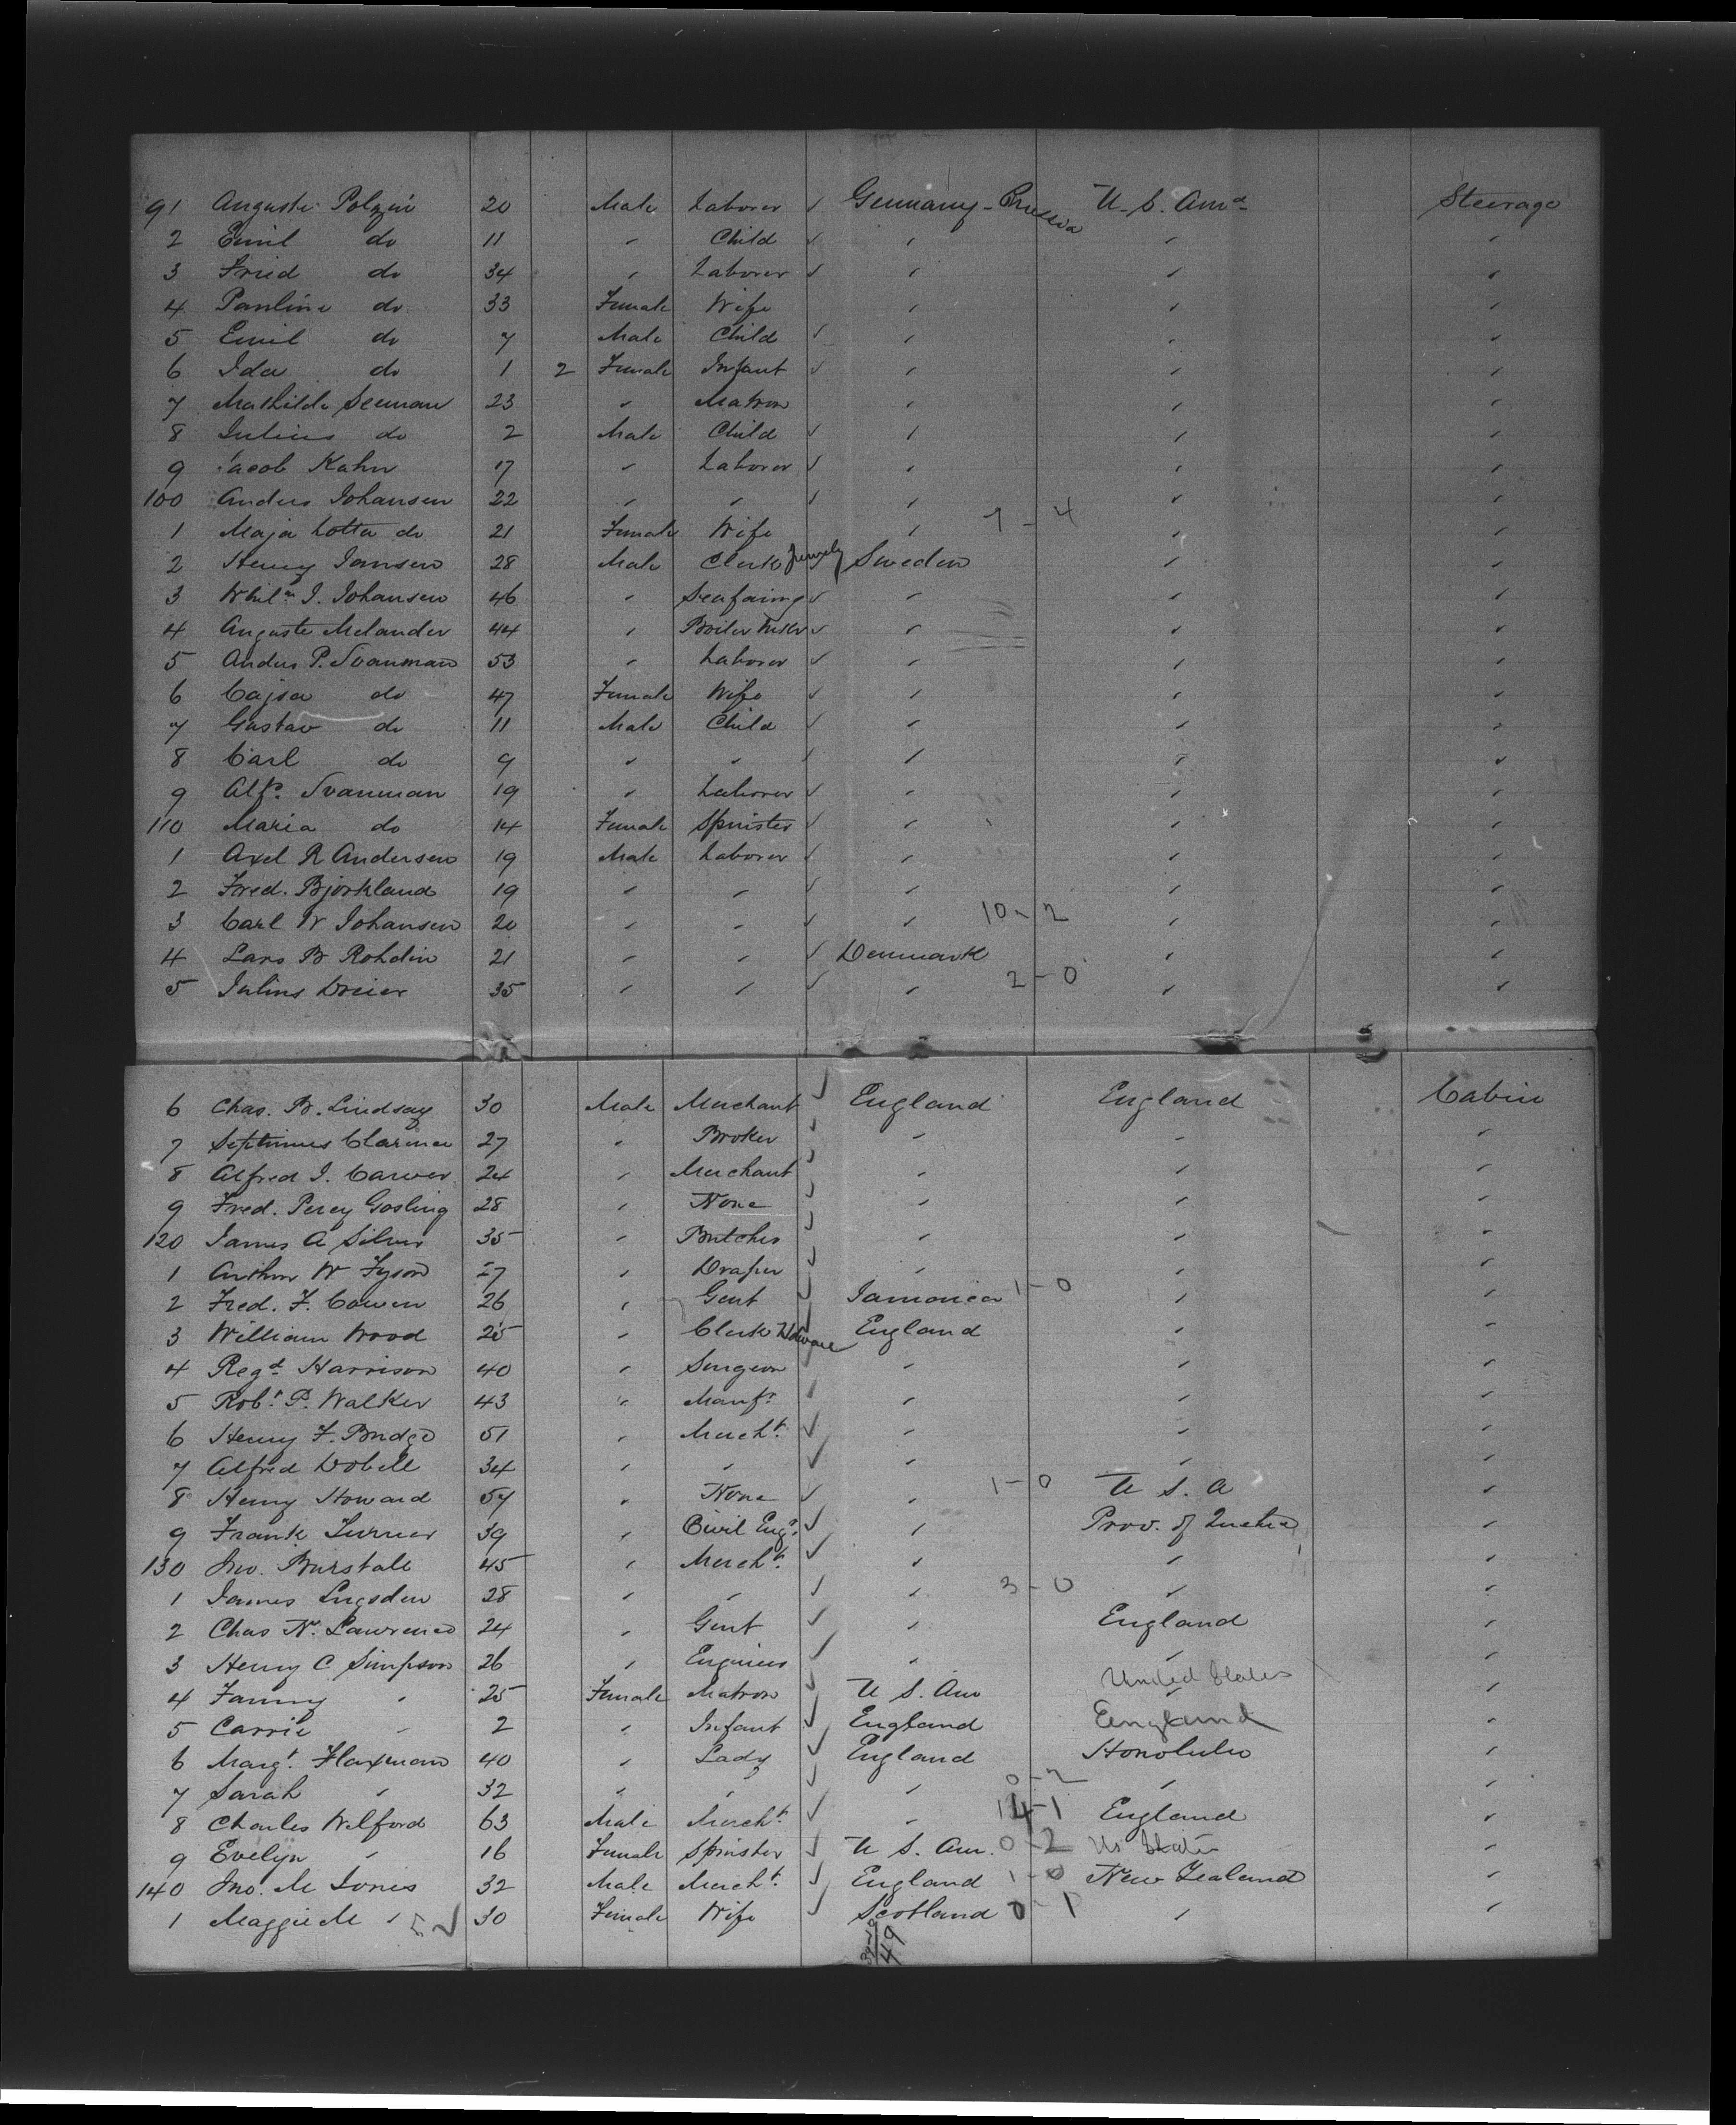 91 Auguste Polzin 20 Male Laborer ✓ Germany - Prussia U. S. Ama Steerage
2 Emil do 11 " Child ✓ " " "
3 Fried do 34 " Laborer ✓ " " "
4 Pauline do 33 Female Wife " " "
5 Emil do 7 Male Child ✓ " " "
6 Ida do 1 2 Female Infant ✓ " " "
7 Mathilde Seeman 23 " Matron " " "
8 Julius do 2 Male Child ✓ " " "
9 Jacob Kahn 17 " Laborer ✓ " " "
100 Anders Johansen 22 " " ✓ " " "
1 Maja Lotta do 21 Female Wife " 7 - 4 " "
2 Henry Jansen 28 Male Clerk Sweden " "
3 Whilm J. Johansen 46 " Seafaring ✓ " " "
4 Auguste Melander 44 " Boiler Mkr ✓ " " "
5 Anders P. Svanman 53 " Laborer ✓ " " "
6 Cajsa do 47 Female Wife ✓ " " "
7 Gustav do 11 Male Child ✓ " " "
8 Carl do 9 " " ✓ " " "
9 Alfd. Svanman 19 " Laborer ✓ " " "
110 Maria do 14 Female Spinster ✓ " " "
1 Axel R Andersen 19 Male Laborer ✓ " " "
2 Fred. Bjorkland 19 " " ✓ " " "
3 Carl W Johansen 20 " " ✓ " 10 - 2 " "
4 Lars B Rohdin 21 " " ✓ Denmark " "
5 Julius Dreier 35 " " ✓ " 2 - 0 " "
6 Chas. B. Lindsay 30 Male Merchant ✓ England England Cabin
7 Septimus Clarence 27 " Broker ✓ " " "
8 Alfred J. Carver 24 " Merchant ✓ " " "
9 Fred. Percy Gosling 28 " None ✓ " " "
120 James A Silver 35 " Butcher ✓ " " "
1 Arthur W Tyson 27 " Draper ✓ " " "
2 Fred. F. Cowen 26 " Gent ✓ Jamaica 1 - 0 " "
3 William Wood 25 " Clerk England " "
4 Regd Harrison 40 " Surgeon ✓ " " "
5 Robt. P. Walker 43 " Manfr ✓ " " "
6 Henry F. Bridge 51 " Mercht. ✓ " " "
7 Alfred Dobell 34 " " ✓ " " "
8 Henry Howard 57 " None ✓ " 1 - 0 U S. A "
9 Frank Turner 39 " Civil Engr. ✓ " Prov. of Quebec "
130 Jno. Burstall 45 " Mercht. ✓ " " "
1 James Lugsden 28 " " ✓ " 3 - 0 " "
2 Chas N. Lawrence 24 " Gent ✓ " England "
3 Henry C Simpson 26 " Engineer ✓ " " "
4 Fanny " 25 Female Matron ✓ U S. Am United States "
5 Carrie " 2 " Infant ✓ England England "
6 Margt. Flaxman 40 " Lady ✓ England Honolulu "
7 Sarah " 32 " " ✓ " 0 - 2 " "
8 Charles Welford 63 Male Mercht. ✓ " 14 - 1 England "
9 Evelyn " 16 Female Spinster ✓ U S. Am. 0 - 2 U. States "
140 Jno. M Jones 32 Male Mercht. ✓ England 1 - 0 New Zealand "
1 Maggie M " 30 Female Wife ✓ Scotland 0 - 1 " "
49